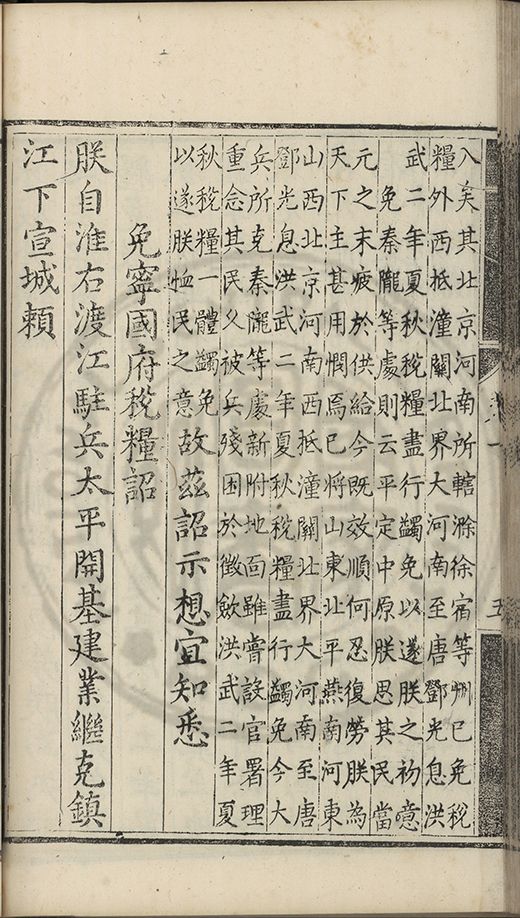 入矣其北京河南所轄滁徐宿等州已免稅
糧外西抵潼關北界大河南至唐鄧光息洪
武二年夏秋稅糧盡行蠲免以遂朕之初意
免秦隴等處則云平定中原朕思其民當
元之末疲於供給今既效順何忍復勞朕為
天下主甚用憫焉已將山東北平燕南河東
山西北京河南西抵潼關北界大河南至唐
鄧光息洪武二年夏秋稅糧盡行蠲免今大
兵所克秦隴等處新附地面雖嘗設官署理
重念其民久被兵殘困於徵斂洪武二年夏
秋稅糧一體蠲免
以遂朕恤民之意故茲詔示想宜知悉
免寧國府稅糧詔
朕自淮右渡江駐兵太平開基建業繼克鎮
江下宣城賴
一
五